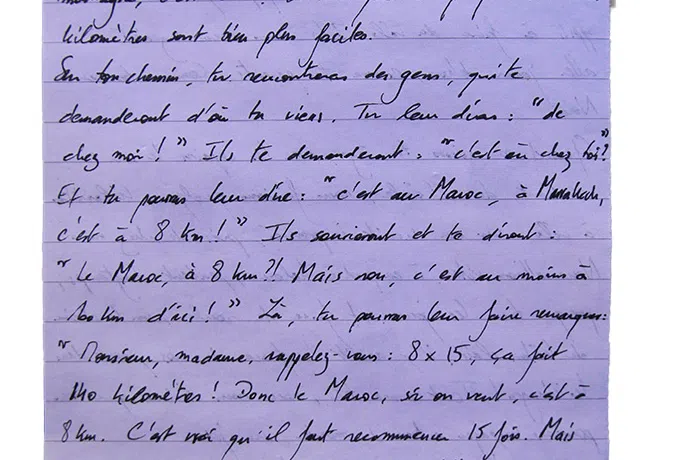 kilomètres sont bien plus faciles.
Sur ton chemin, tu rencontreras des gens, qui te
demanderont d'où tu viens. Tu leur diras : "de
chez moi ! " Ils te demanderont : "c'est où chez toi"?
Et tu pourras leur dire : "c'est au Maroc, à Marrakech,
c'est à 8 km ! " Ils sourieront et te diront :
"Le Maroc, à 8 km ?! Mais non, c'est au moins à
km d'ici ! " Là, tu pourras leur faire remarquer :
"Monsieur, madame, rappelez-vous : 8 x 15, ça fait
kilomètres ! Donc le Maroc, si on veut, c'est à
8 km. C'est vrai qu'il faut recommencer 15 fois. Mais